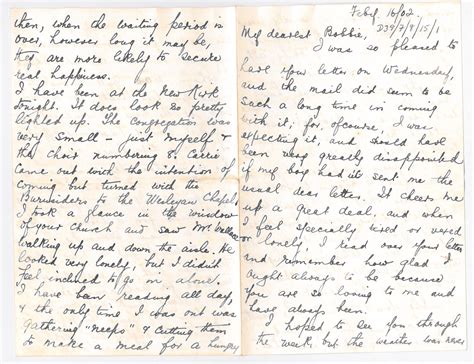 Feby. 16/02.
D39/7/9/15/1
My dearest Bobbie,
I was so pleased to
have your letter on Wednesday,
and the mail did seem to be
such a long time in coming
with it; for, of course, I was
expecting it, and should have
been very greatly disappointed
if my boy had'nt sent me the
usual dear letter. It cheers me
up a great deal, and when
I feel specially tired or vexed
or lonely, I read over your letters
and remember how glad I
ought always to be because
you are so loving to me and
have always been.
I hoped to see you through
the week but the weather was never
then, when the waiting period is
over, however long it may be,
they are more likely to secure
real happiness.
I have been at the New Kirk
tonight. It does look so pretty
lighted up. The congregation was
very small – just myself &
the choir numbering 8. Carrie
came out with the intention of
coming but turned with the
Burnsiders to the Wesleyan Chapel
I took a glance in the window
of your Church and saw Mr. Wallace
walking up and down the aisle. He
looked very lonely, but I did'nt
feel inclined to go in alone.
I have been reading all day,
& the only time I was out was
gathering "neeps" & cutting them
to make a meal for a hungry